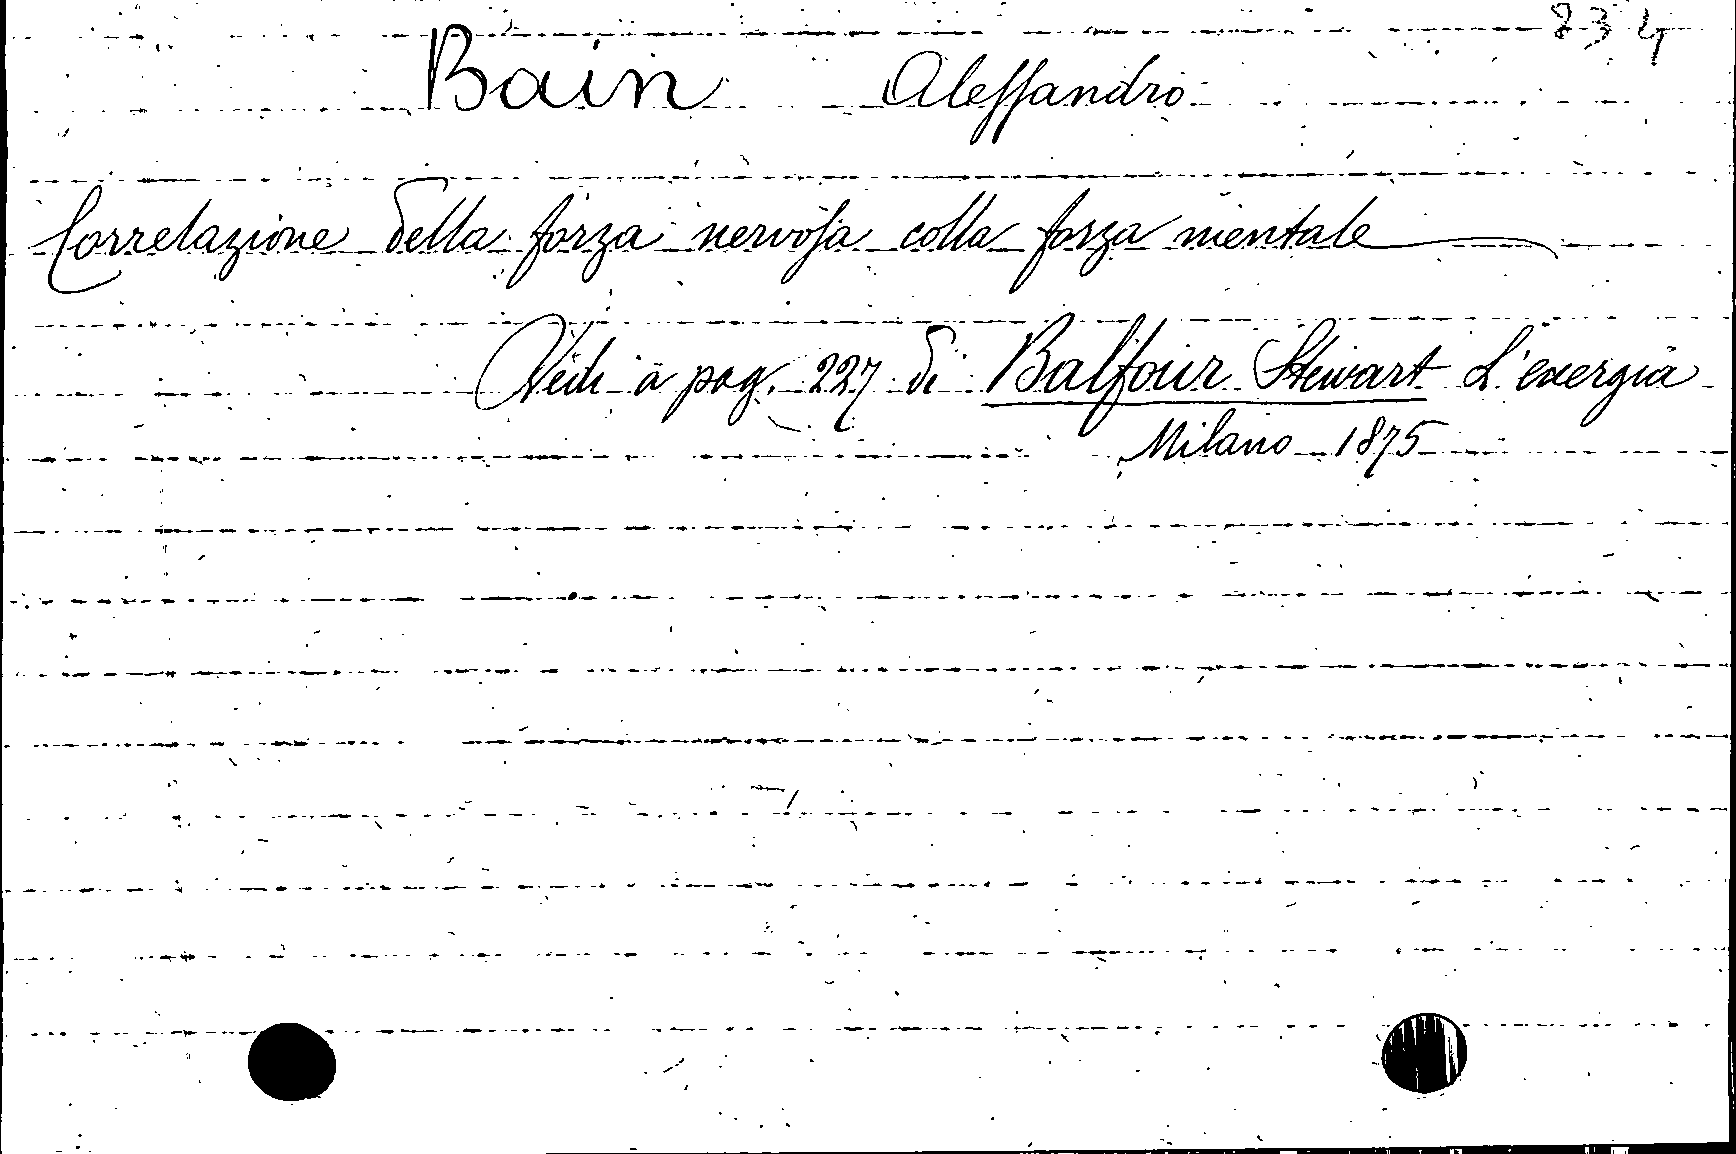 834
Bain Alessandro
Correlazione della forza nervosa colla forza mentale
Vedi a pag. 227 di Balfour Stewart L'energia
Milano 1875